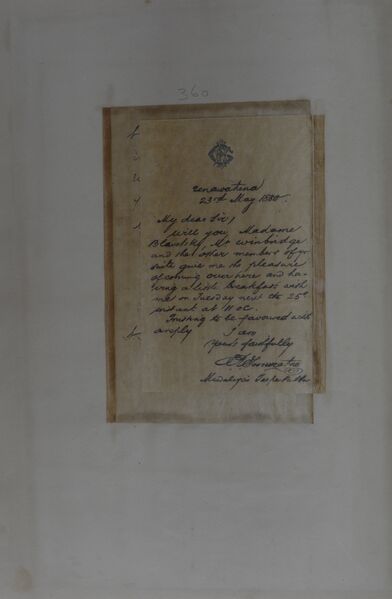 360
23rd May 1880.
My dear Sir,
Will you, Madame
Blavatsky, Mr Winbridge
and the other members of yr
suite give me the pleasure
of coming over here and ha-
ving a little breakfast with
me on Tuesday next the 25th
instant at 11 oC.
Trusting to be favoured with
a reply
I am
Yours faithfully